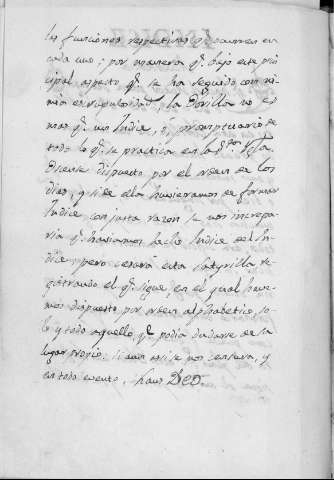 las funciones respectivas q.e ocurren en
cada uno; por manera q.e bajo este prin
cipal aspecto q.e se ha seguido con ni-
mia escrupulosidad, la Dorilla no es
mas q.e un Indice, ó, promptuario de
todo lo q.e se practica en la
Iglesia dispuesto por el orden de los
dias, y si de ella husieramos de formar
Indice con justa razon se nos increpa-
ria q.e haviamos hecho Indice del In-
dice; pero cesará esta satyrilla re-
gistrando el q.e sigue, en el qual have-
mos dispuesto por orden alphabetico, so-
lo y todo aquello, q.e podia dudarse de su
lugar proprio: si aun asi se nos censura, y
en todo evento, Laus Deo.